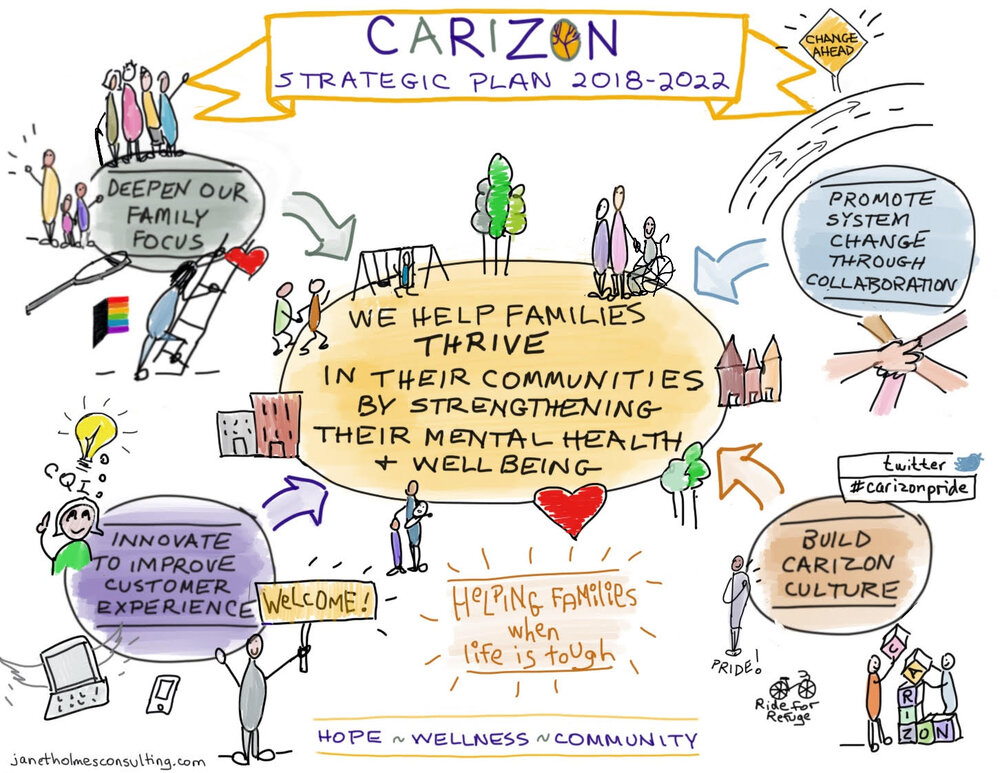 CARIZON
STRATEGIC PLAN 2018-2022
CHANGE
AHEAD
DEEPEN OUR
FAMILY
FOCUS
PROMOTE
SYSTEM
CHANGE
THROUGH
COLLABORATION
WE HELP FAMILIES
THRIVE
IN THEIR COMMUNITIES
BY STRENGTHENING
THEIR MENTAL HEALTH
+ WELL BEING
CQI
INNOVATE
TO IMPROVE
CUSTOMER
EXPERIENCE
WELCOME!
twitter
#carizonpride
BUILD
CARIZON
CULTURE
PRIDE!
Ride for
Refuge
C
A
R
I
Z O N
HELPING FAMILIES
when
life is tough
HOPE ~ WELLNESS ~ COMMUNITY
janetholmesconsulting.com